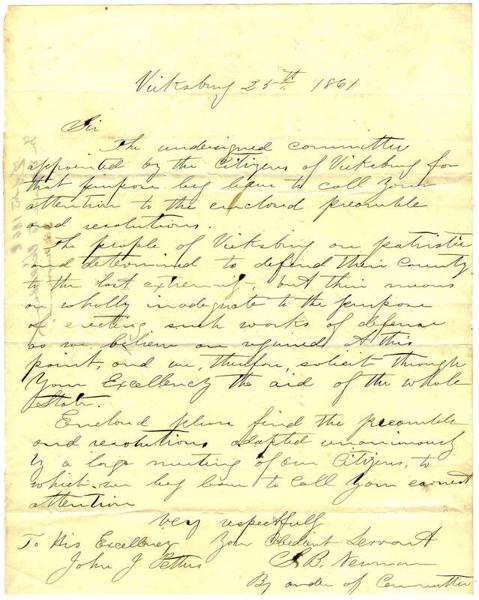 Vicksburg 25th 1861
Sir
The undersigned committee
appointed by the Citizens of Vicksburg for
that purpose beg leave to call your
attention to the enclosed preamble
and resolutions.
The people of Vicksburg are patriotic
and determined to defend their County
to the last extremity, but their means
are wholly inadequate to the purpose
of erecting such works of defense
as we believe are required at this
point, and we, therefore, solicit through
Your Excellency the aid of the whole
State.
Enclosed please find the preamble
and resolutions adopted unanimously
by a large meeting of our Citizens, to
which we beg leave to call your earnest
attention
Very respectfully
To His Excellency Your Obedient Servant
John J Pettus S. B. Newman
By order of Committee